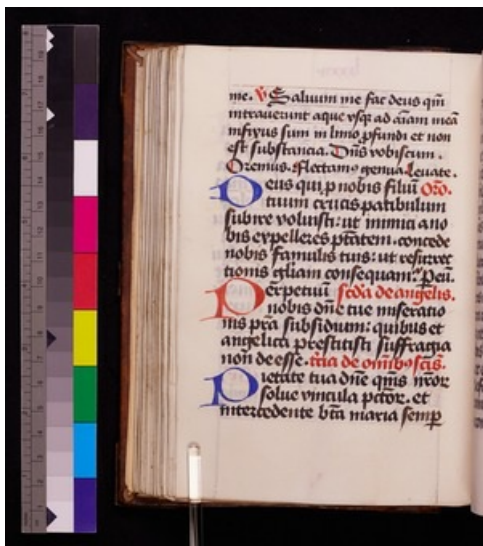 me. V Saluum me fac deus qm̄
intrauerunt aque vsqꝫ ad aīam meā
infixus sum in limo ꝓfundi et non
est substancia. Dn̄s vobiscum.
Oremus. Flectamꝰ genua. Leuate.
Deus qui ꝓ nobis filiū Oro.
tuum crucis patibulum
subire voluisti: ut inimici a no
bis expelleres ptātem. concede
nobis famulis tuis: ut resurrec
tionis gl̄iam consequam. Per eū.
Perpetuū scd̄a de angelis.
nobis dn̄e tue miseratio
nis pr̄a subsidium: quibus et
angelica prestitisti suffragia
non deesse. tr̄cia de om̄ibꝰ sc̄is.
Pietate tua dn̄e qm̄s nr̄or
solue vincula pctōr. et
intercedente bt̄a maria semꝑ